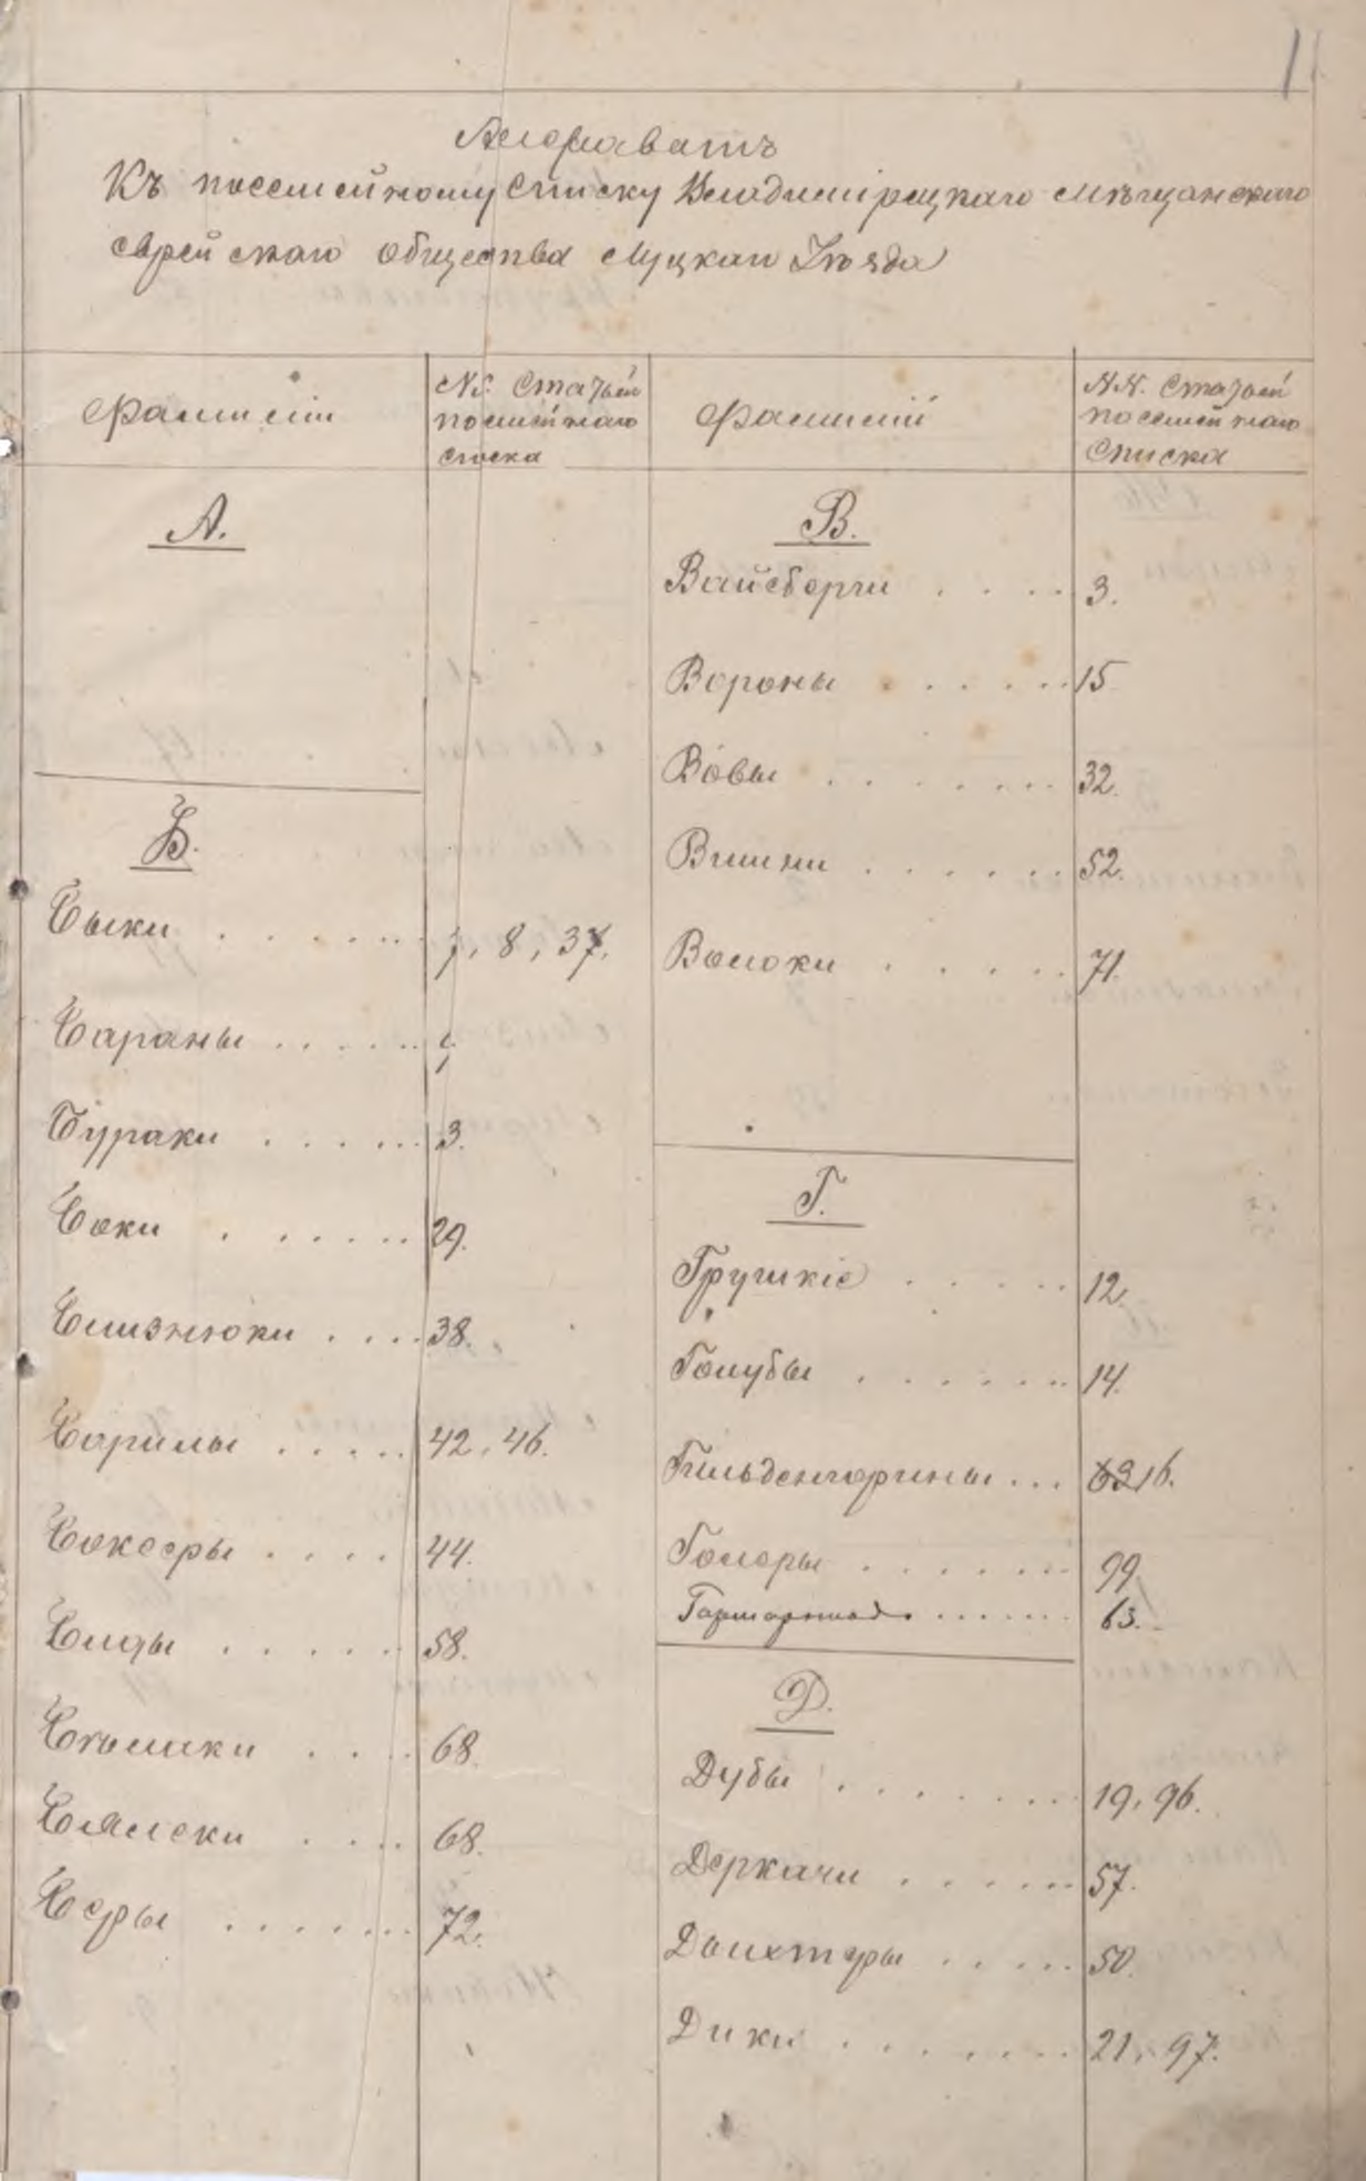 Алфавитъ
Къ посемейному списку Владимірецкаго мѣщанскаго
еврейскаго общества Луцкаго Уѣзда
Фамиліи
№№. Статьей
посемейнаго
списка
А.
Б.
Быки . . . . . . 7, 8, 37.
Бараны . . . . .
Бураки . . . . . 3.
Боки . . . . . . 29.
Близнюки . . . . 38.
Борилы . . . . . 42, 46.
Боксеры . . . . 44.
58.
68.
68.
Беры . . . . . . 72.
Фамиліи
№№. Статьей
посемейнаго
Списка
В.
Вайсберги . . . . 3.
Вороны . . . . . 15
Вовы . . . . . . 32.
Вишни . . . . . . 52.
Волоки . . . . . 71.
Г.
Грушкіе . . . . . 12.
Голубы . . . . . . 14.
Гильденгорины . . . 16.
Голеры . . . . . . 99.
63.
Д.
Дубы . . . . . . . 19, 96.
Деркачи . . . . . 57.
Долхтеры . . . . . 50.
Дики . . . . . . . 21, 97.